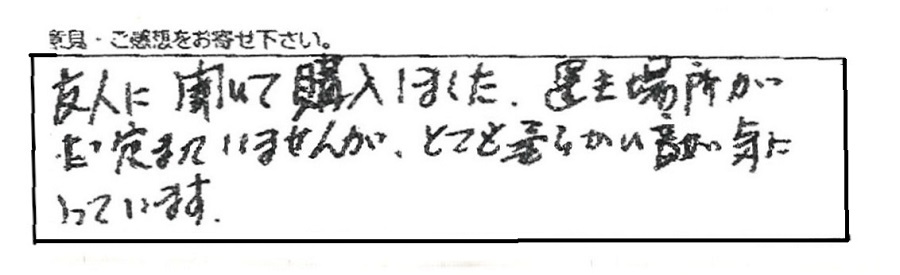 意見・ご感想をお寄せ下さい。
友人に聞いて購入しました。置き場所が
まだ定まっていませんが、とても柔らかい音が気に
入っています。